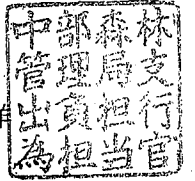 林支行官
森局担当
部理負担
中管出為